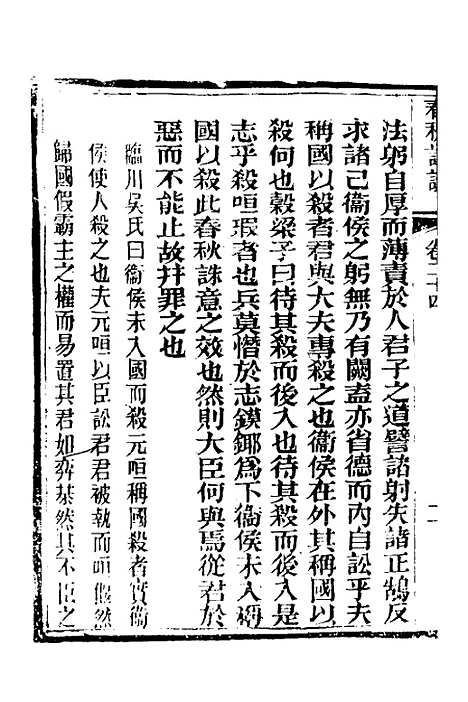 卷二十四
法躬自厚而薄責於人君子之道譬諸射失諸正鵠反
求諸己衞侯之躬無乃有闕盍亦省德而內自訟乎夫
稱國以殺者君與大夫專殺之也衞侯在外其稱國以
殺何也穀梁子曰待其殺而後入也待其殺而後入是
志乎殺咺瑕者也兵莫憯於志鏌鋣爲下衞侯未入稱
國以殺此春秋誅意之效也然則大臣何與焉從君於
惡而不能止故幷罪之也
臨川吳氏曰衞侯未入國而殺元咺稱國殺者實衞
侯使人殺之也夫元咺以臣訟君君被執而咺偃然
歸國假霸主之權而易置其君如弈棊然其不臣之